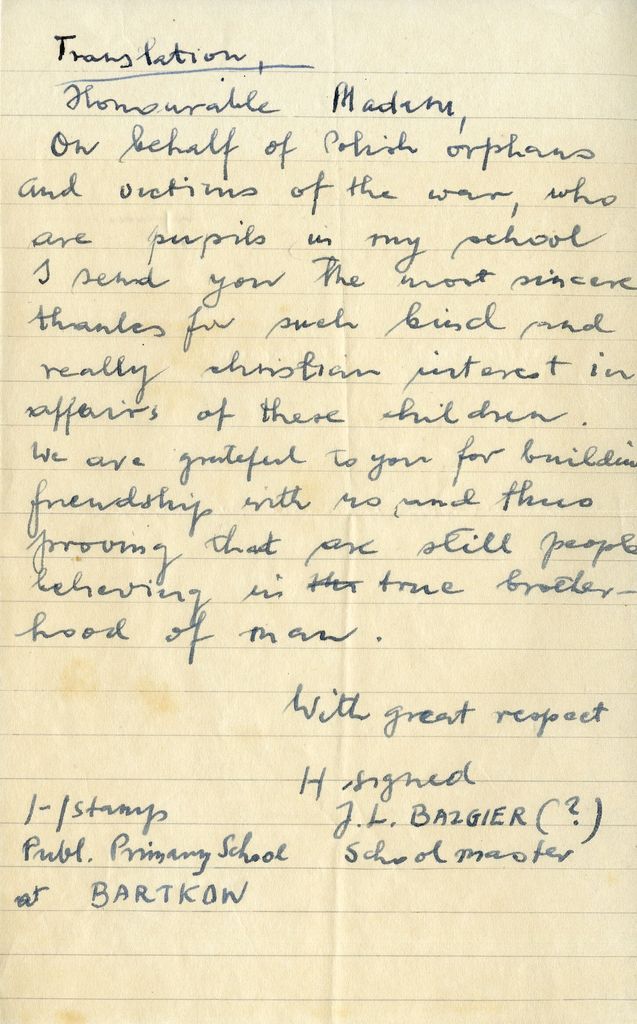 Translation,
Honourable Madam,
On behalf of Polish orphans
and victims of the war, who
are pupils in my school
I send you the most sincere
thanks for such kind and
really christian interest in
affairs of these children.
We are grateful to you for buildin
friendship with us and thus
proving that are still people
believing in the true brother-
hood of man.
With great respect
H signed
/-/stamp
J.L. BAZGIER (?)
Publ. Primary School
School master
at BARTKOW